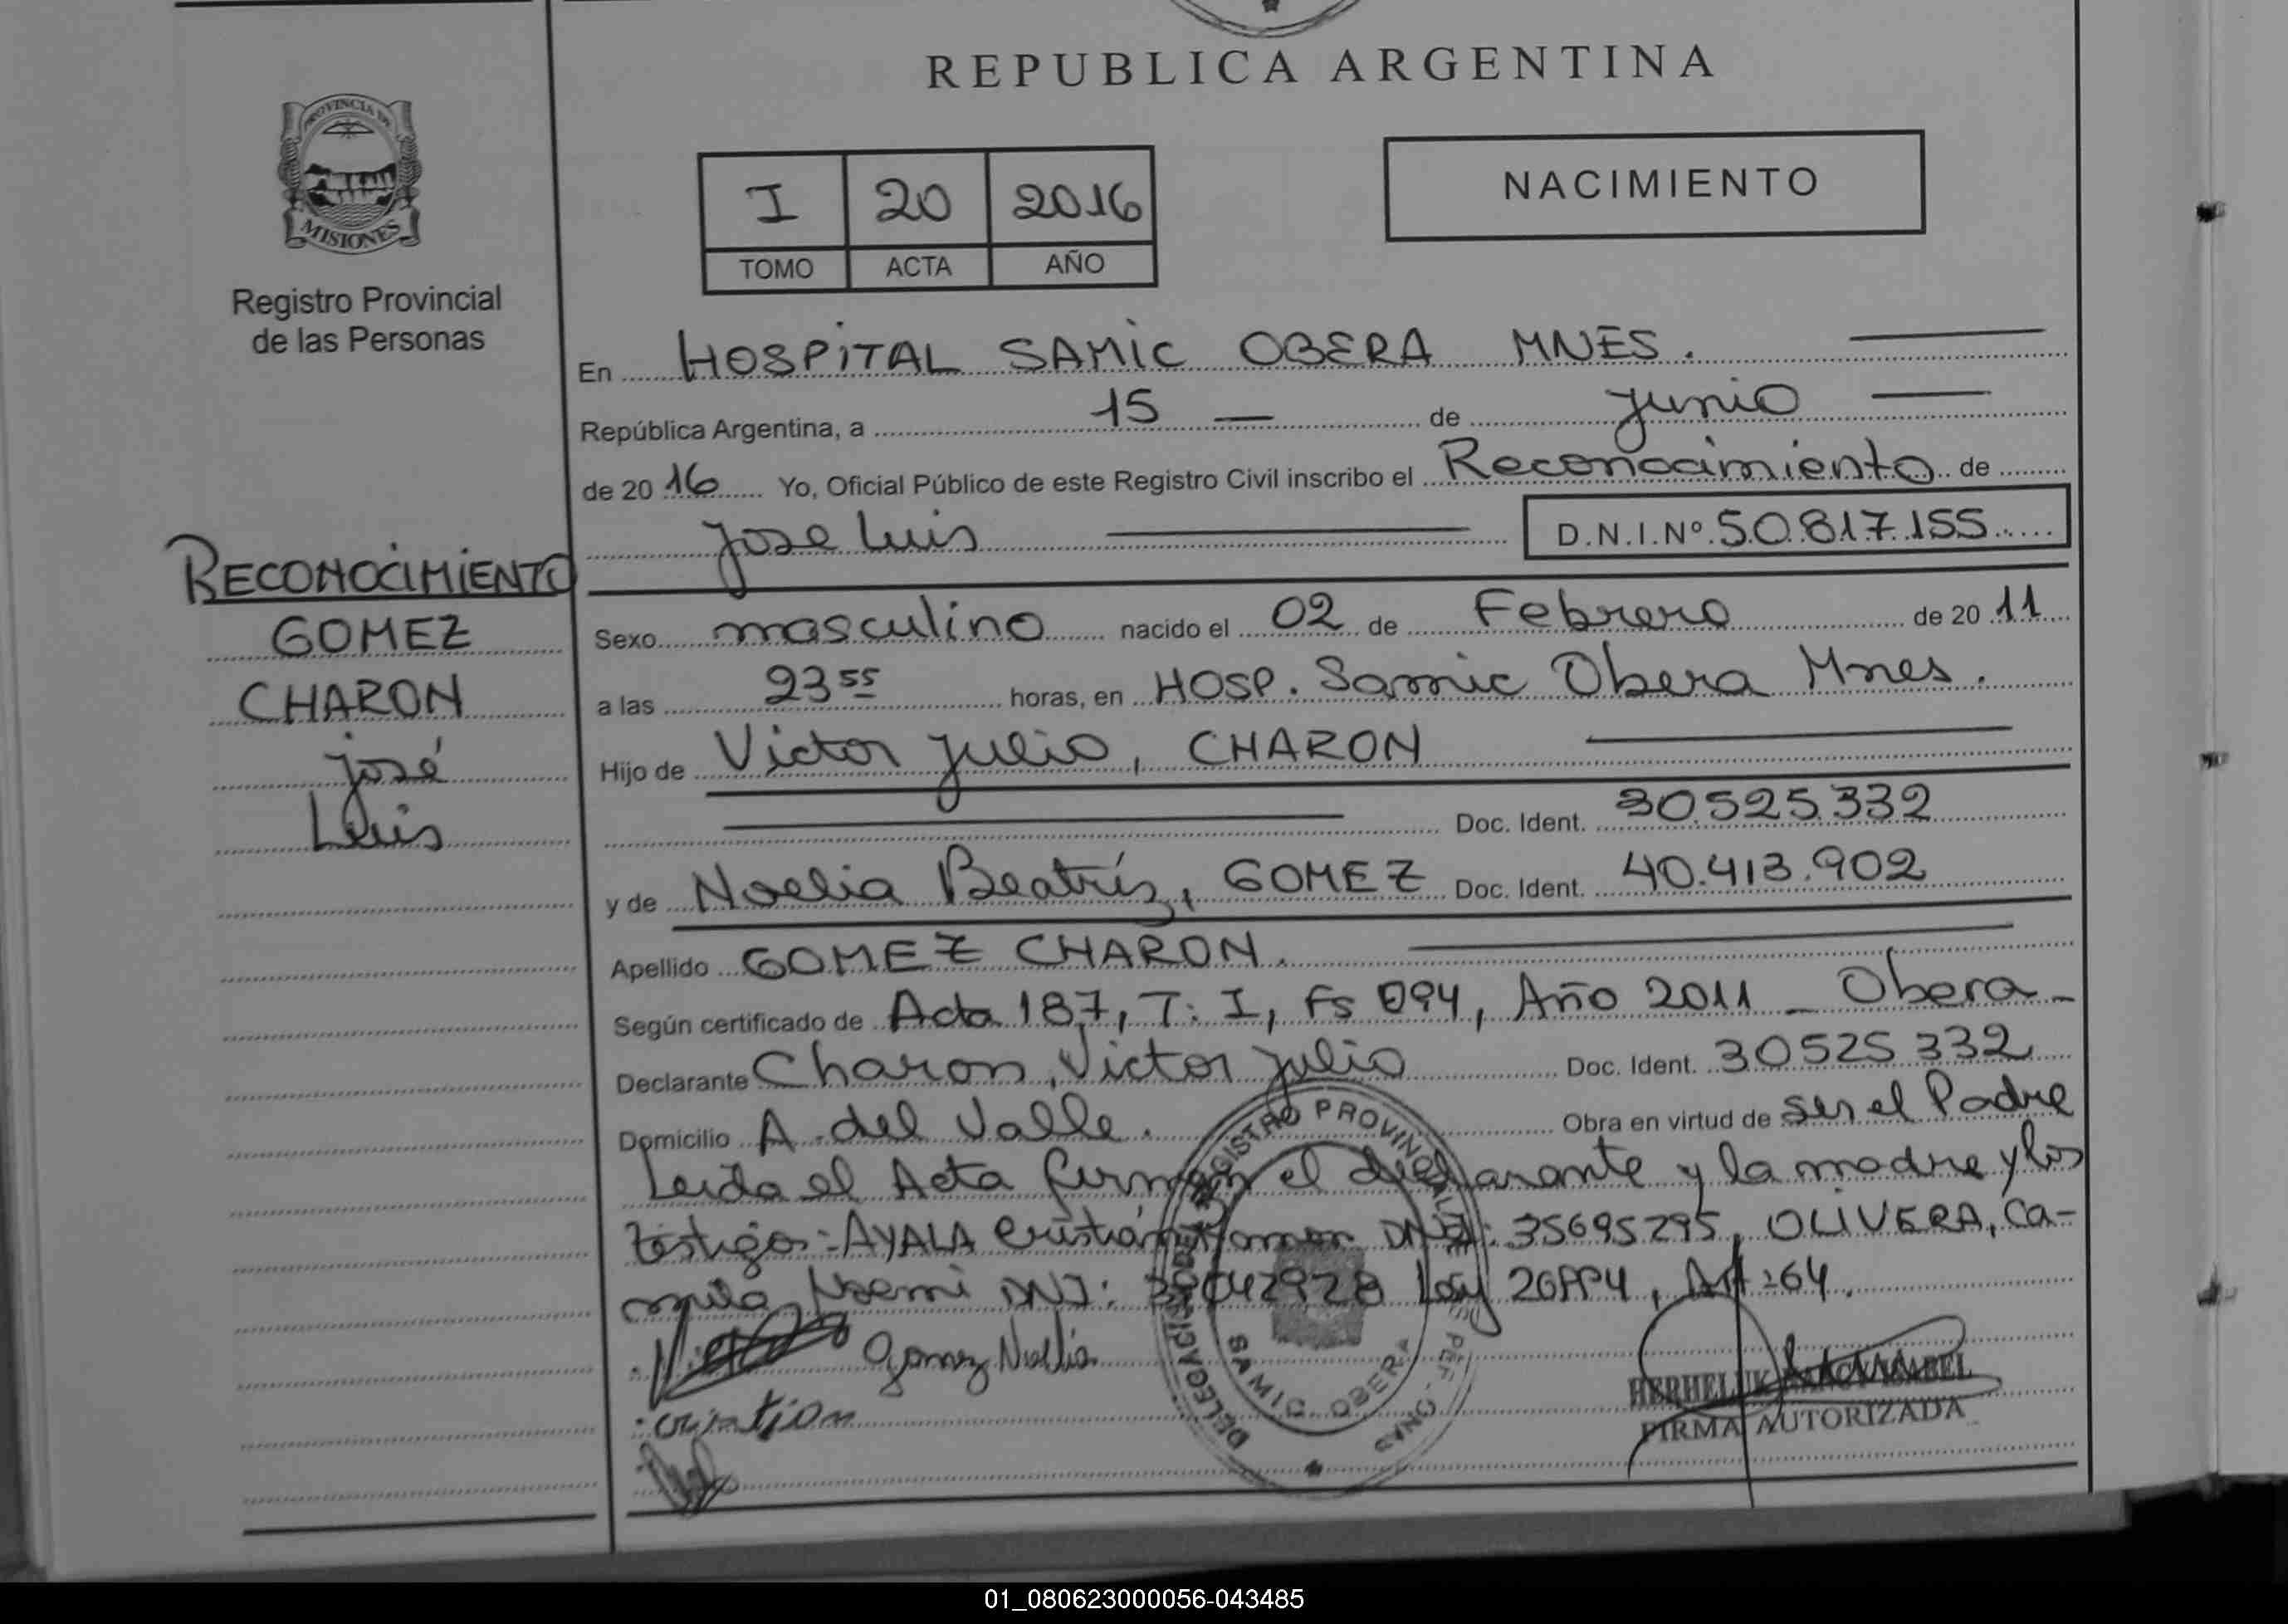 REPUBLICA ARGENTINA
PROVINCIA DE
MISIONES
Registro Provincial
de las Personas
I 20 2016
TOMO ACTA AÑO
NACIMIENTO
En HOSPITAL SAMIC OBERA MNES.
República Argentina, a 15 de Junio
de 20 16 Yo, Oficial Público de este Registro Civil inscribo el Reconocimiento de
Jose Luis D.N.I.Nº 50.817.155
RECONOCIMIENTO
GOMEZ
CHARON
José
Luis
Sexo masculino nacido el 02 de Febrero de 20 11
a las 23 55 horas, en HOSP. Samic Obera Mnes.
Hijo de Victor Julio, CHARON
Doc. Ident. 30.525.332
y de Noelia Beatríz, GOMEZ Doc. Ident. 40.413.902
Apellido GOMEZ CHARON.
Según certificado de Acta 187, T: I, Fs 094, Año 2011 - Obera -
Declarante Charon, Victor Julio Doc. Ident. 30525 332
Domicilio A. del Valle. Obra en virtud de ser el Padre
Leida el Acta firman el declarante y la madre y los
testigos: AYALA Cristián Ramon DNI: 35695295, OLIVERA, Ca-
mila Noemi DNI: Ley 26994, Art: 64.
Gomez Noelia
cristian
REGISTRO PROVINCIAL
DELEGACION
SAMIC OBERA
FIRMA AUTORIZADA
01_080623000056-043485